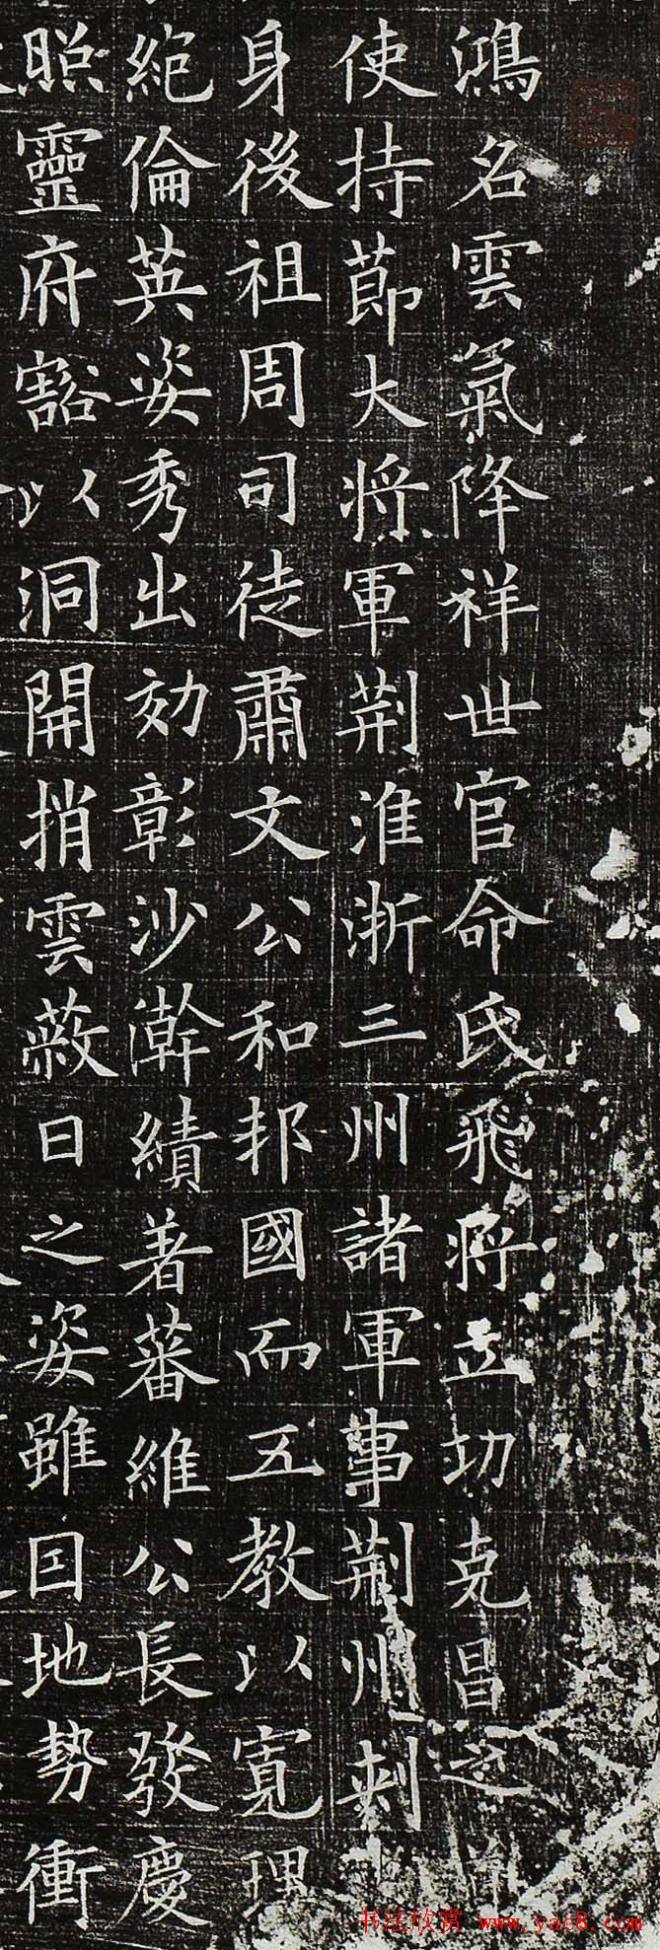 鴻名雲氣降祥世官命氏飛將立功克昌之
使持節大將軍荊淮浙三州諸軍事荊州刺
身後祖周司徒肅文公和邦國而五教以寬理
絕倫英姿秀出効彰沙瀚績著蕃維公長發慶
照靈府豁以洞開捎雲蔽日之姿雖因地勢衝
书法欣赏 www.yac8.com